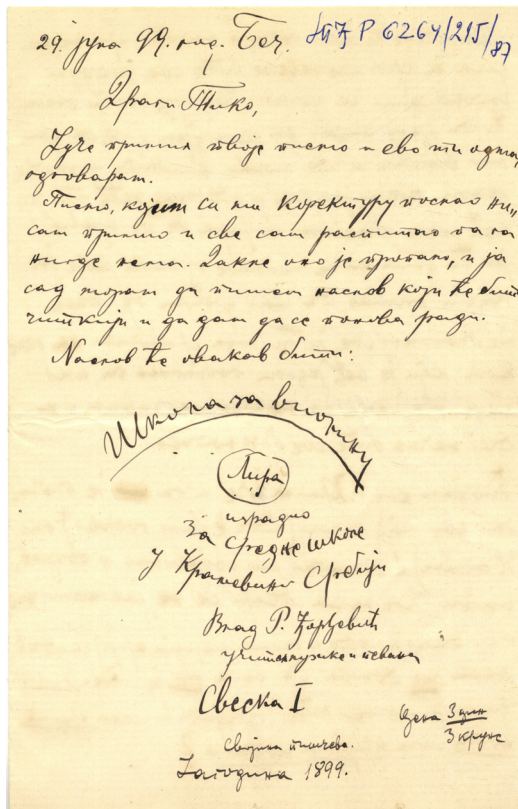 29. јула 99. год. Беч.
ЈТЂ Р 6264/215/87
Драги Тико,
Јуче примих твоје писмо и ево ти одмах
одговарам.
Писмо, којим си ми коректуру послао ни„
сам примио и све сам распитао па га
нигде нема. Дакле оно је пропало, и ја
сад морам да пишем наслов који ће бити
читкији и да дам да се понова ради.
Наслов ће овакав бити:
Школа за виолину
Лира
израдио
За средње школе
у Краљевини Србији
Влад. Р. Ђорђевић
учитељ музике и певања
Свеска I
Цена 3 дин
3 круне
Својина пишчева.
Јагодина 1899.